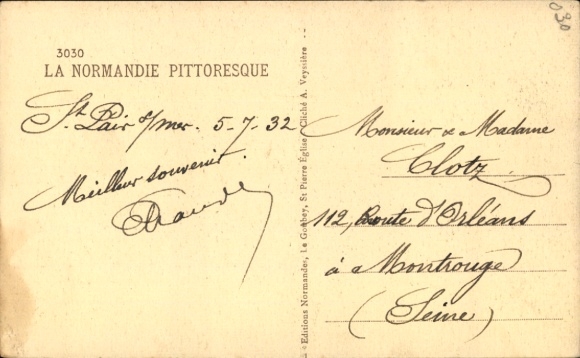 030
3030
LA NORMANDIE PITTORESQUE
St Pair s/mer. 5-7-32
Meilleur souvenir.
"Editions Normandes, Le Goubey, St Pierre Église / Cliché A. Veyssière --
Monsieur & Madame
Clotz
112, Route d'Orléans
à Montrouge
(Seine)